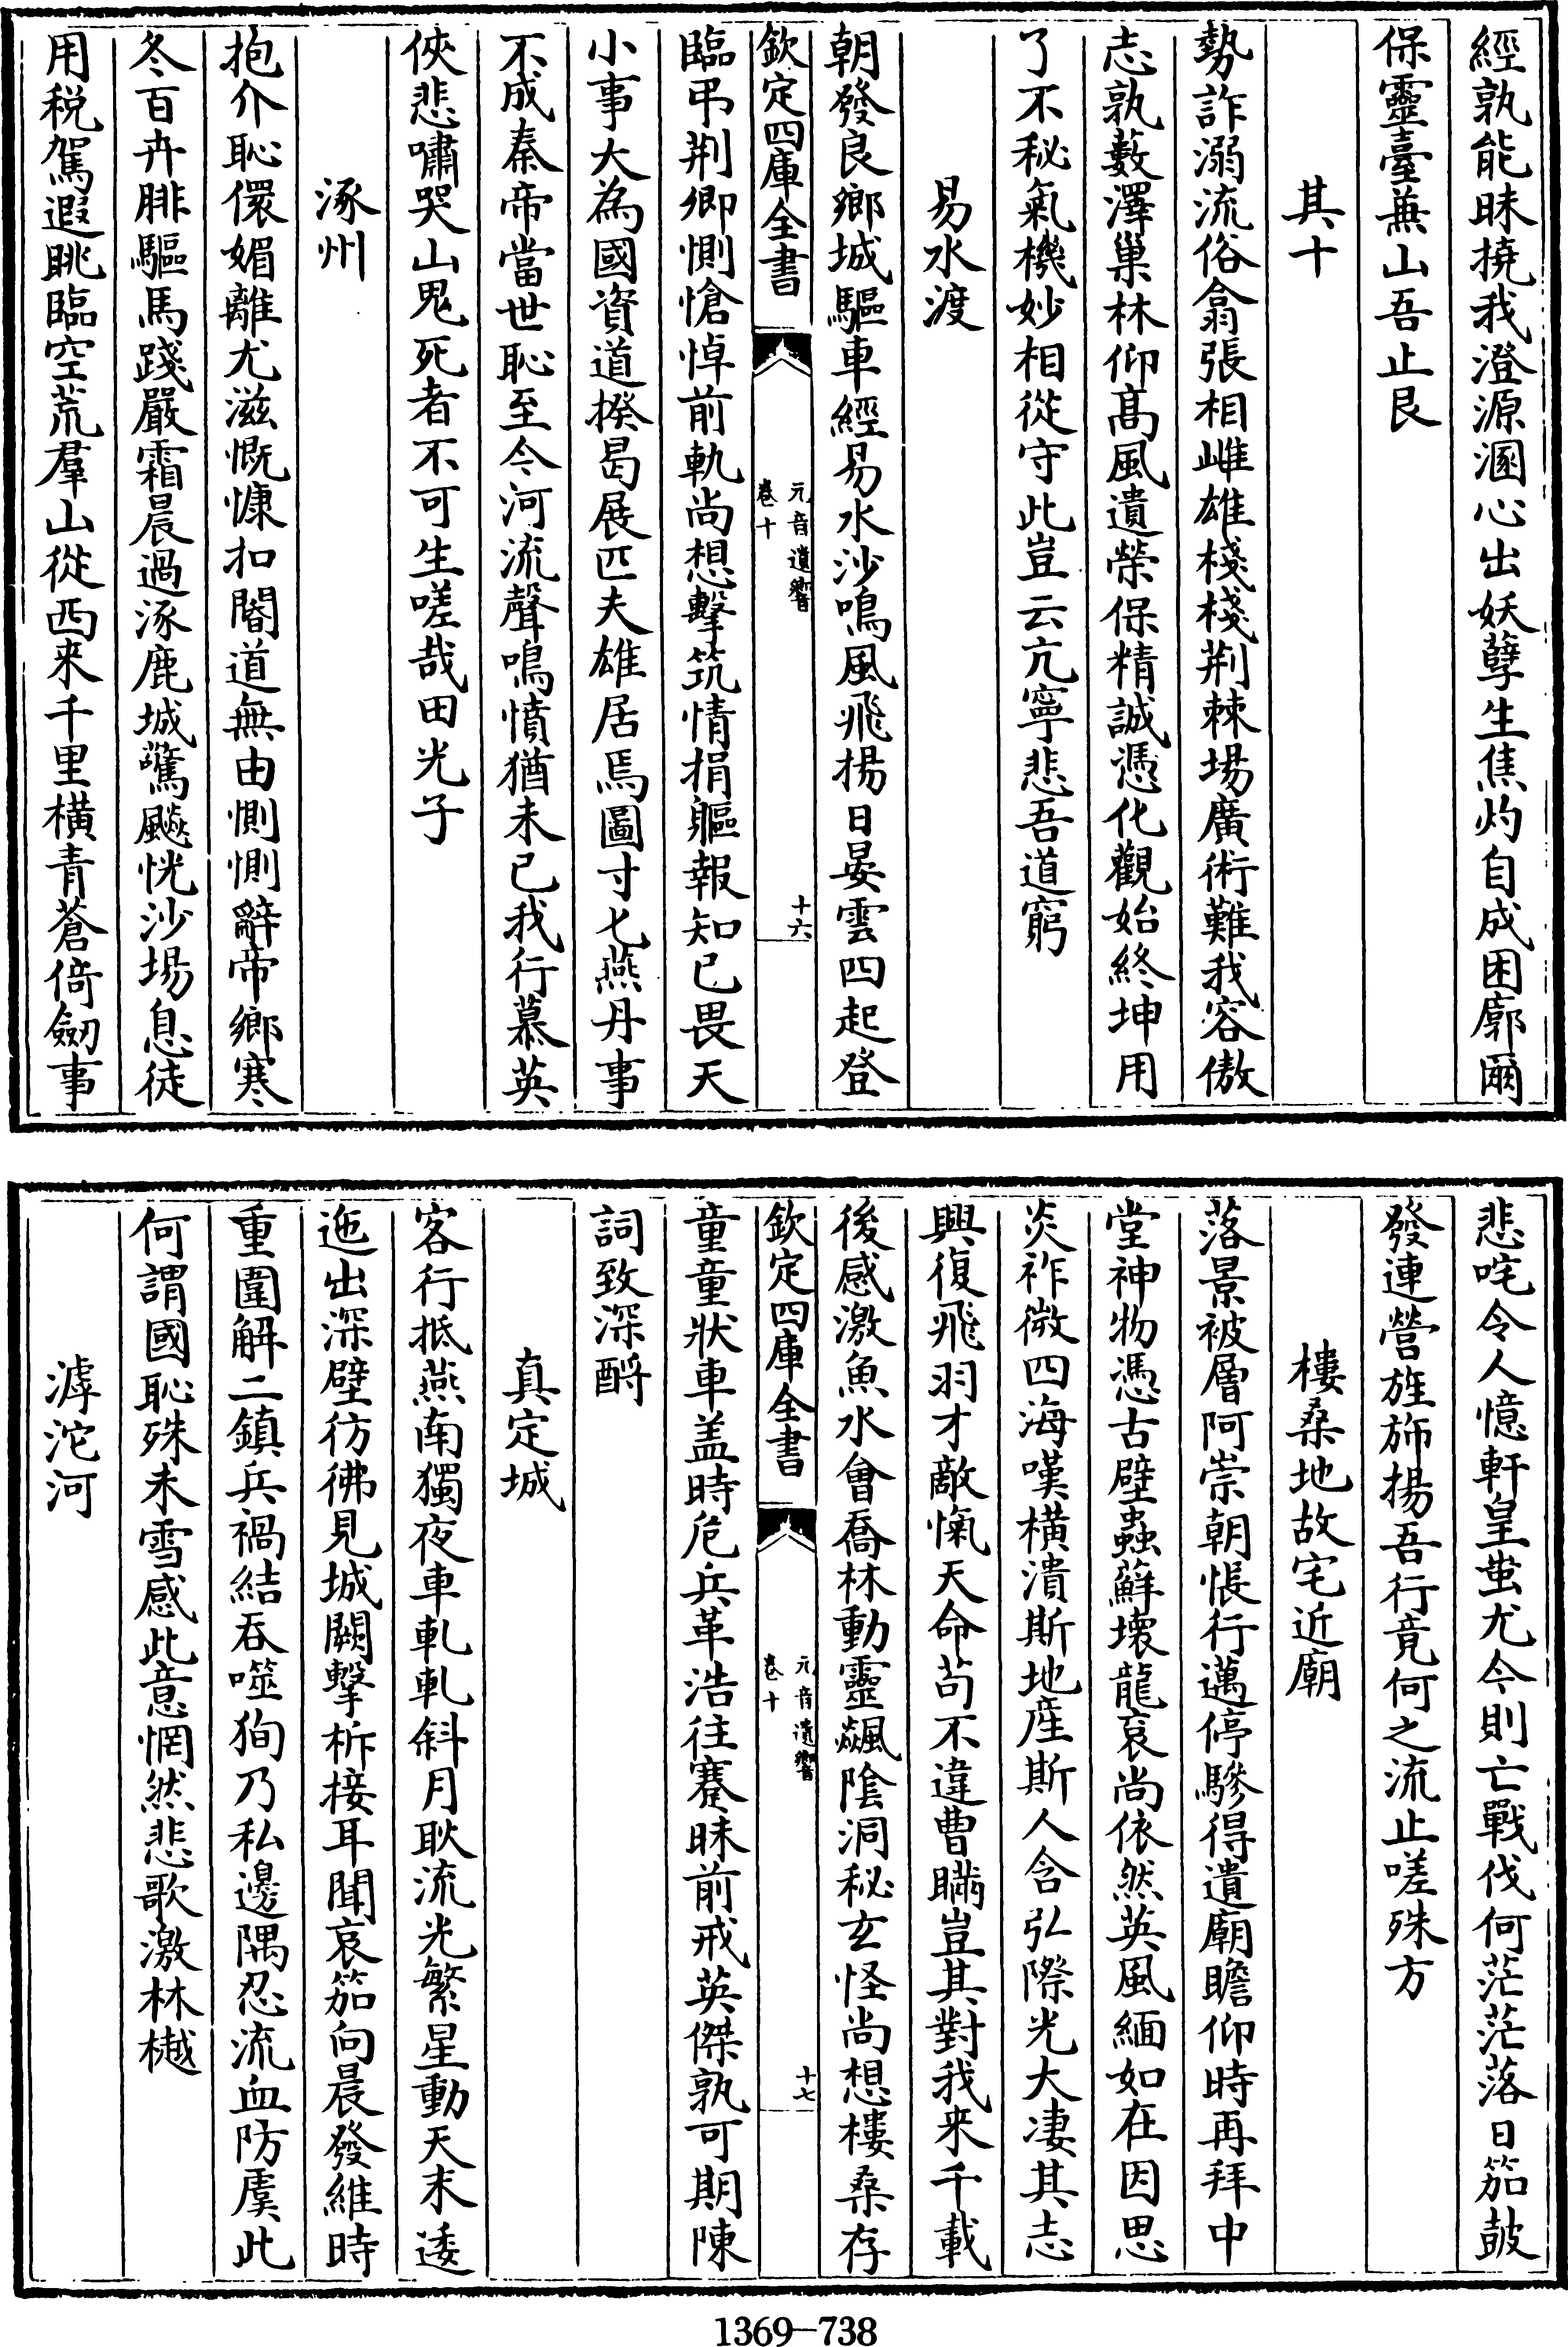 經孰能昧撓我澄源溷心出妖孽生焦灼自成困廓爾
保靈臺兼山吾止艮
其十
勢詐溺流俗翕張相雌雄棧棧荆棘場廣術難我容傲
志孰藪澤巢林仰髙風遺榮保精誠憑化觀始終坤用
了不秘氣機妙相從守此豈云亢寧悲吾道窮
易水渡
朝發良鄉城驅車經易水沙鳴風飛揚日晏雲四起登
欽定四庫全書
元音遺響
卷十
十六
臨弔荆卿惻愴悼前軌尚想擊筑情捐軀報知已畏天
小事大為國資道揆曷展匹夫雄居焉圖寸匕燕丹事
不成秦帝當世恥至今河流聲鳴憤猶未已我行慕英
俠悲嘯哭山鬼死者不可生嗟哉田光子
涿州
抱介恥儇媚離尤滋慨慷扣閽道無由惻惻辭帝鄉寒
冬百卉腓驅馬踐嚴霜晨過涿鹿城驚飈恍沙場息徒
用税駕遐眺臨空荒羣山從西来千里横青蒼倚劒事
悲咤令人憶軒皇蚩尤今則亡戰伐何茫茫落日笳鼓
發連營旌斾揚吾行竟何之流止嗟殊方
樓桑地故宅近廟
落景被層阿崇朝悵行邁停驂得遺廟瞻仰時再拜中
堂神物憑古壁蟲蘚壞龍哀尚依然英風緬如在因思
炎祚微四海嘆横潰斯地産斯人含弘際光大凄其志
興復飛羽才敵愾天命苟不違曹瞞豈其對我来千載
後感激魚水會喬林動靈飇陰洞秘玄怪尚想樓桑存
欽定四庫全書
元音遺響
卷十
十七
童童狀車盖時危兵革浩往蹇昧前戒英傑孰可期陳
詞致深酹
真定城
客行抵燕南獨夜車軋軋斜月耿流光繁星動天末逶
迤出深壁彷彿見城闕擊柝接耳聞哀笳向晨發維時
重圍解二鎮兵禍結吞噬狥乃私邊隅忍流血防虞此
何謂國恥殊未雪感此意惘然悲歌激林樾
滹沱河
1369—738